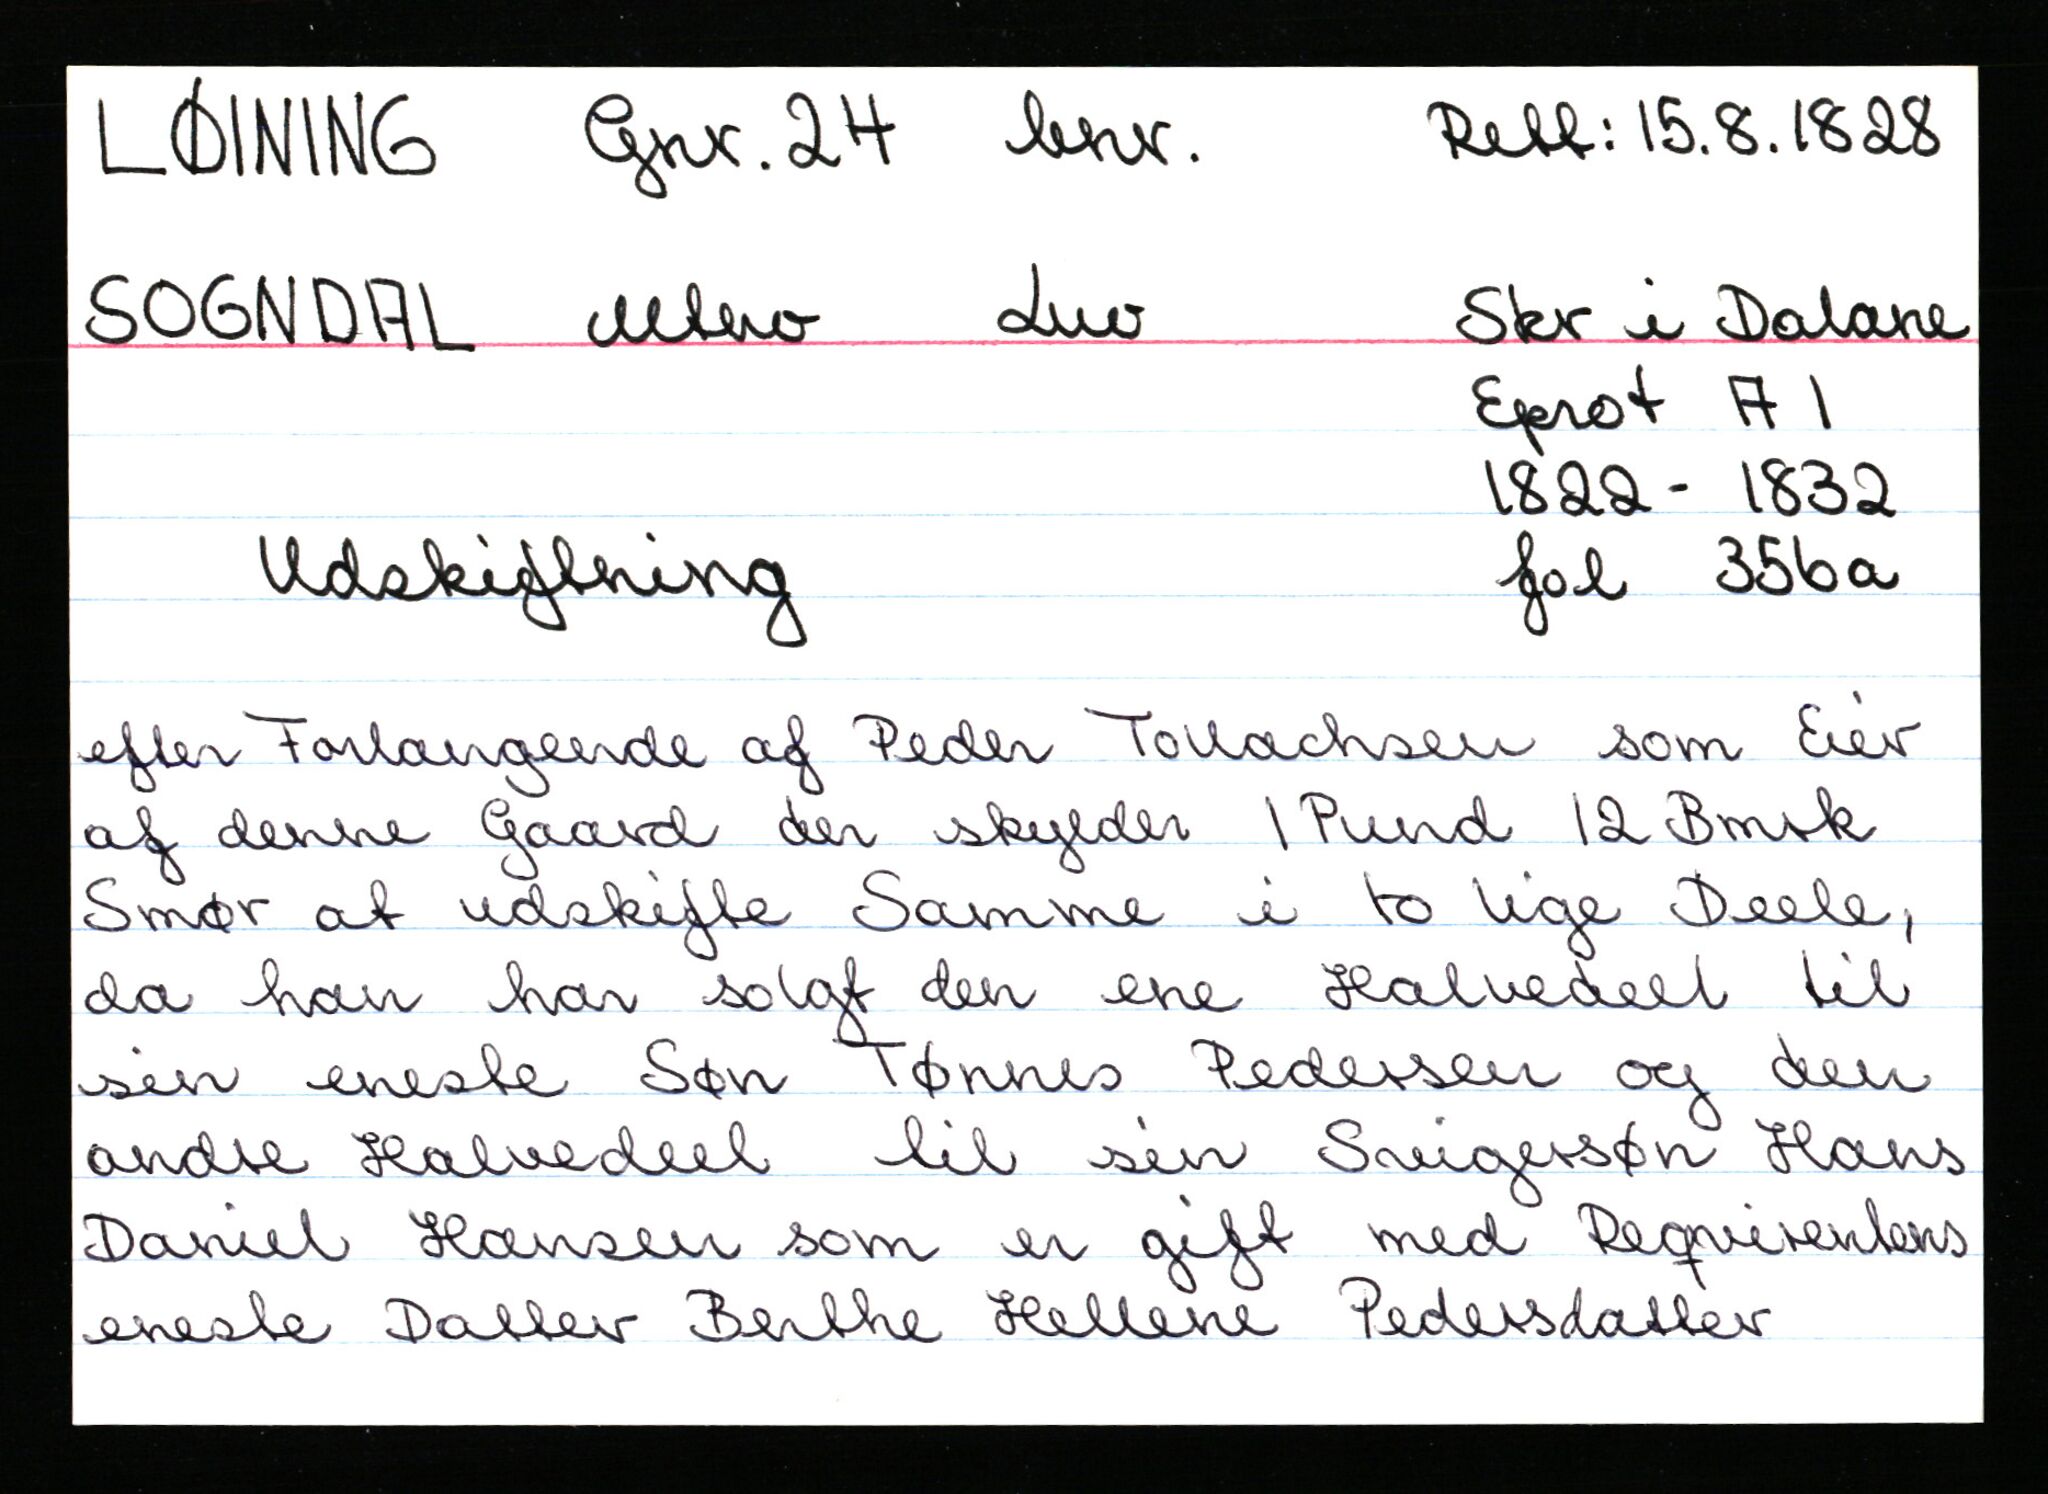 LØINING Gnr. 24 bnr. Rett: 15.8.1828
SOGNDAL Mtrno Lno Skr i Dalane
Eprot A 1
1822 - 1832
Udskiftning fol 356a
efter Forlangende af Peder Tollachsen som Eier
af denne Gaard der skylder 1 Pund 12 Bmrk
Smør at udskifte Samme i to lige Deele,
da han har solgt den ene Halvedeel til
sin eneste Søn Tønnes Pedersen og den
andre Halvedeel til sin Svigersøn Hans
Daniel Hansen som er gift med Reqvirentens
eneste Datter Berthe Hellene Pedersdatter